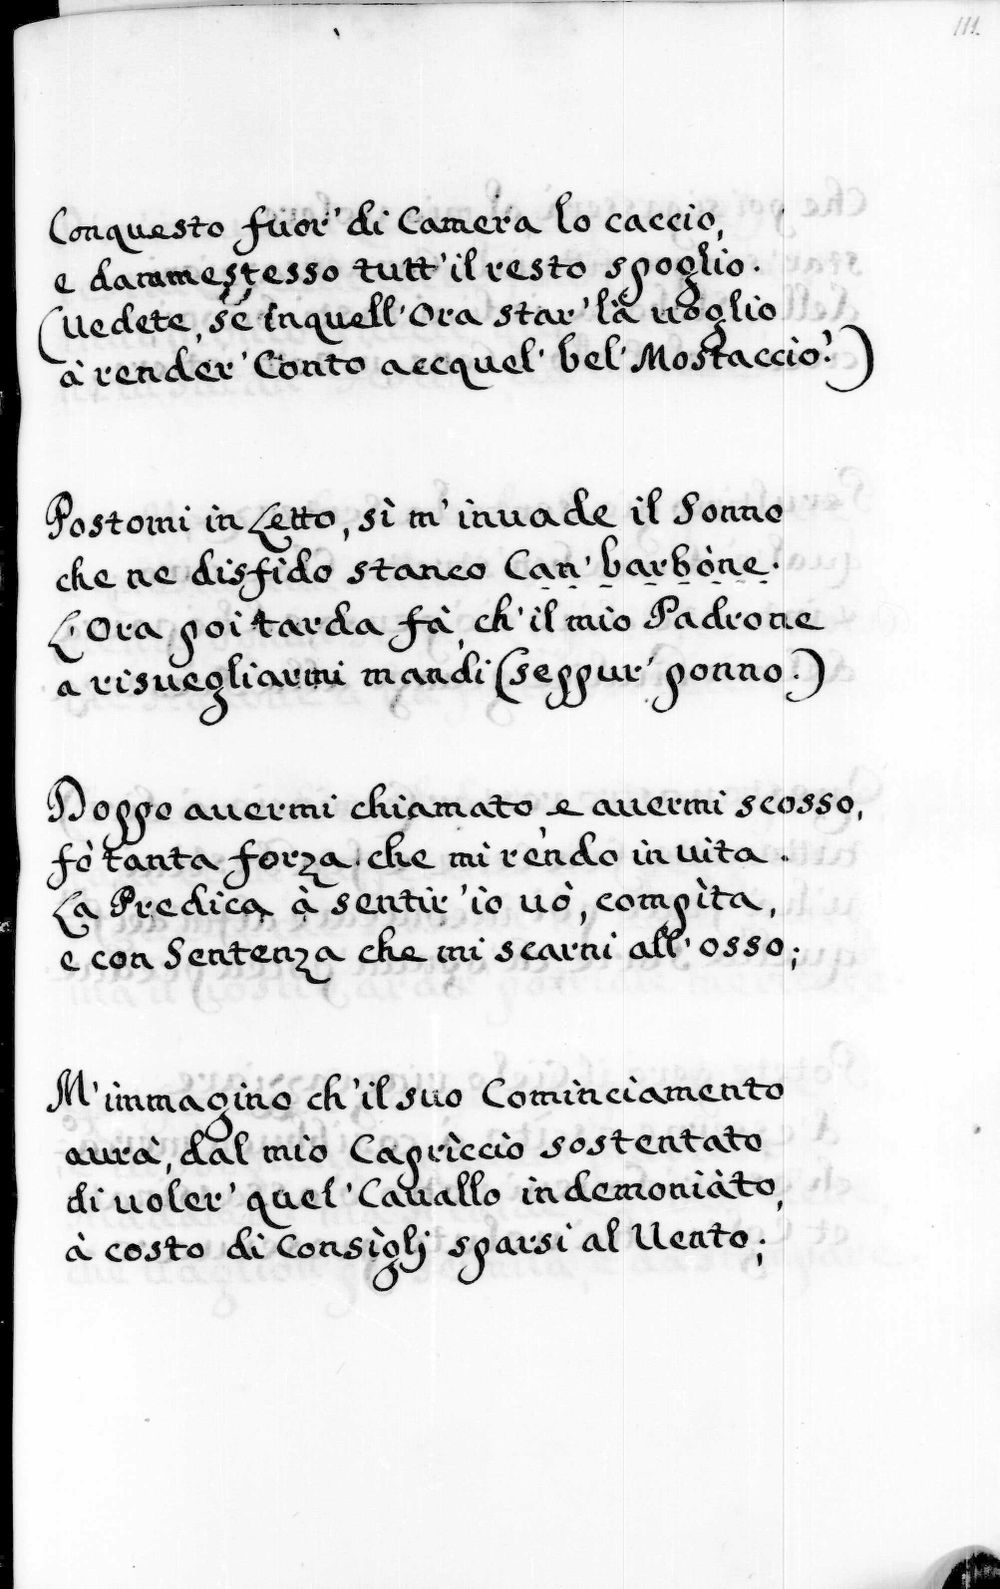 111.
Conquesto fuor' di Camera lo caccio,
e dammestesso tutt' il resto spoglio.
(Vedete, sé inquell' Ora star' là voglio
à render' Conto accquel' bel' Mostaccio?)
Postomi in Letto, sì m' invade il Sonno
che ne disfido stanco Can' barbòne.
L' Ora poi tarda fà, ch' il mio Padrone
a risvegliarmi mandi (seppur' ponno.)
Doppo avermi chiamato e avermi scosso,
fò tanta forza che mi rèndo in vita.
La Predica à sentir' io vò, compìta,
e con Sentenza che mi scarni all' osso;
M' immagino ch' il suo Cominciamento
avrà, dal mio Caprìccio sostentato
di voler' quel' Cavallo indemoniàto,
à costo di Consìglj sparsi al Vento;